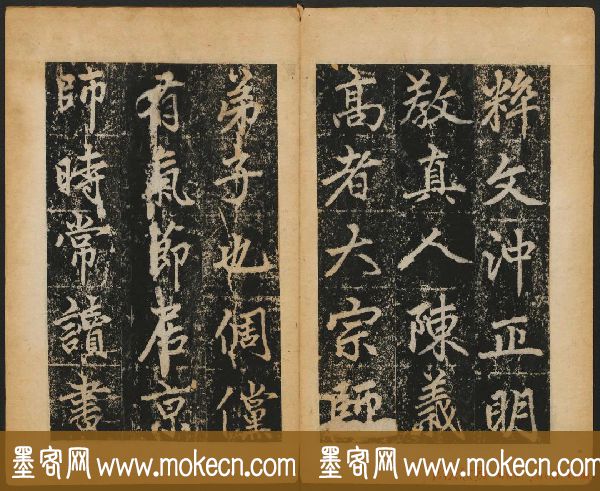 粹文沖正明
教真人陳義
高者大宗師
弟子也倜儻
有氣節居京
師時常讀書
墨客网 www.mokecn.com
墨客网 www.mokecn.com